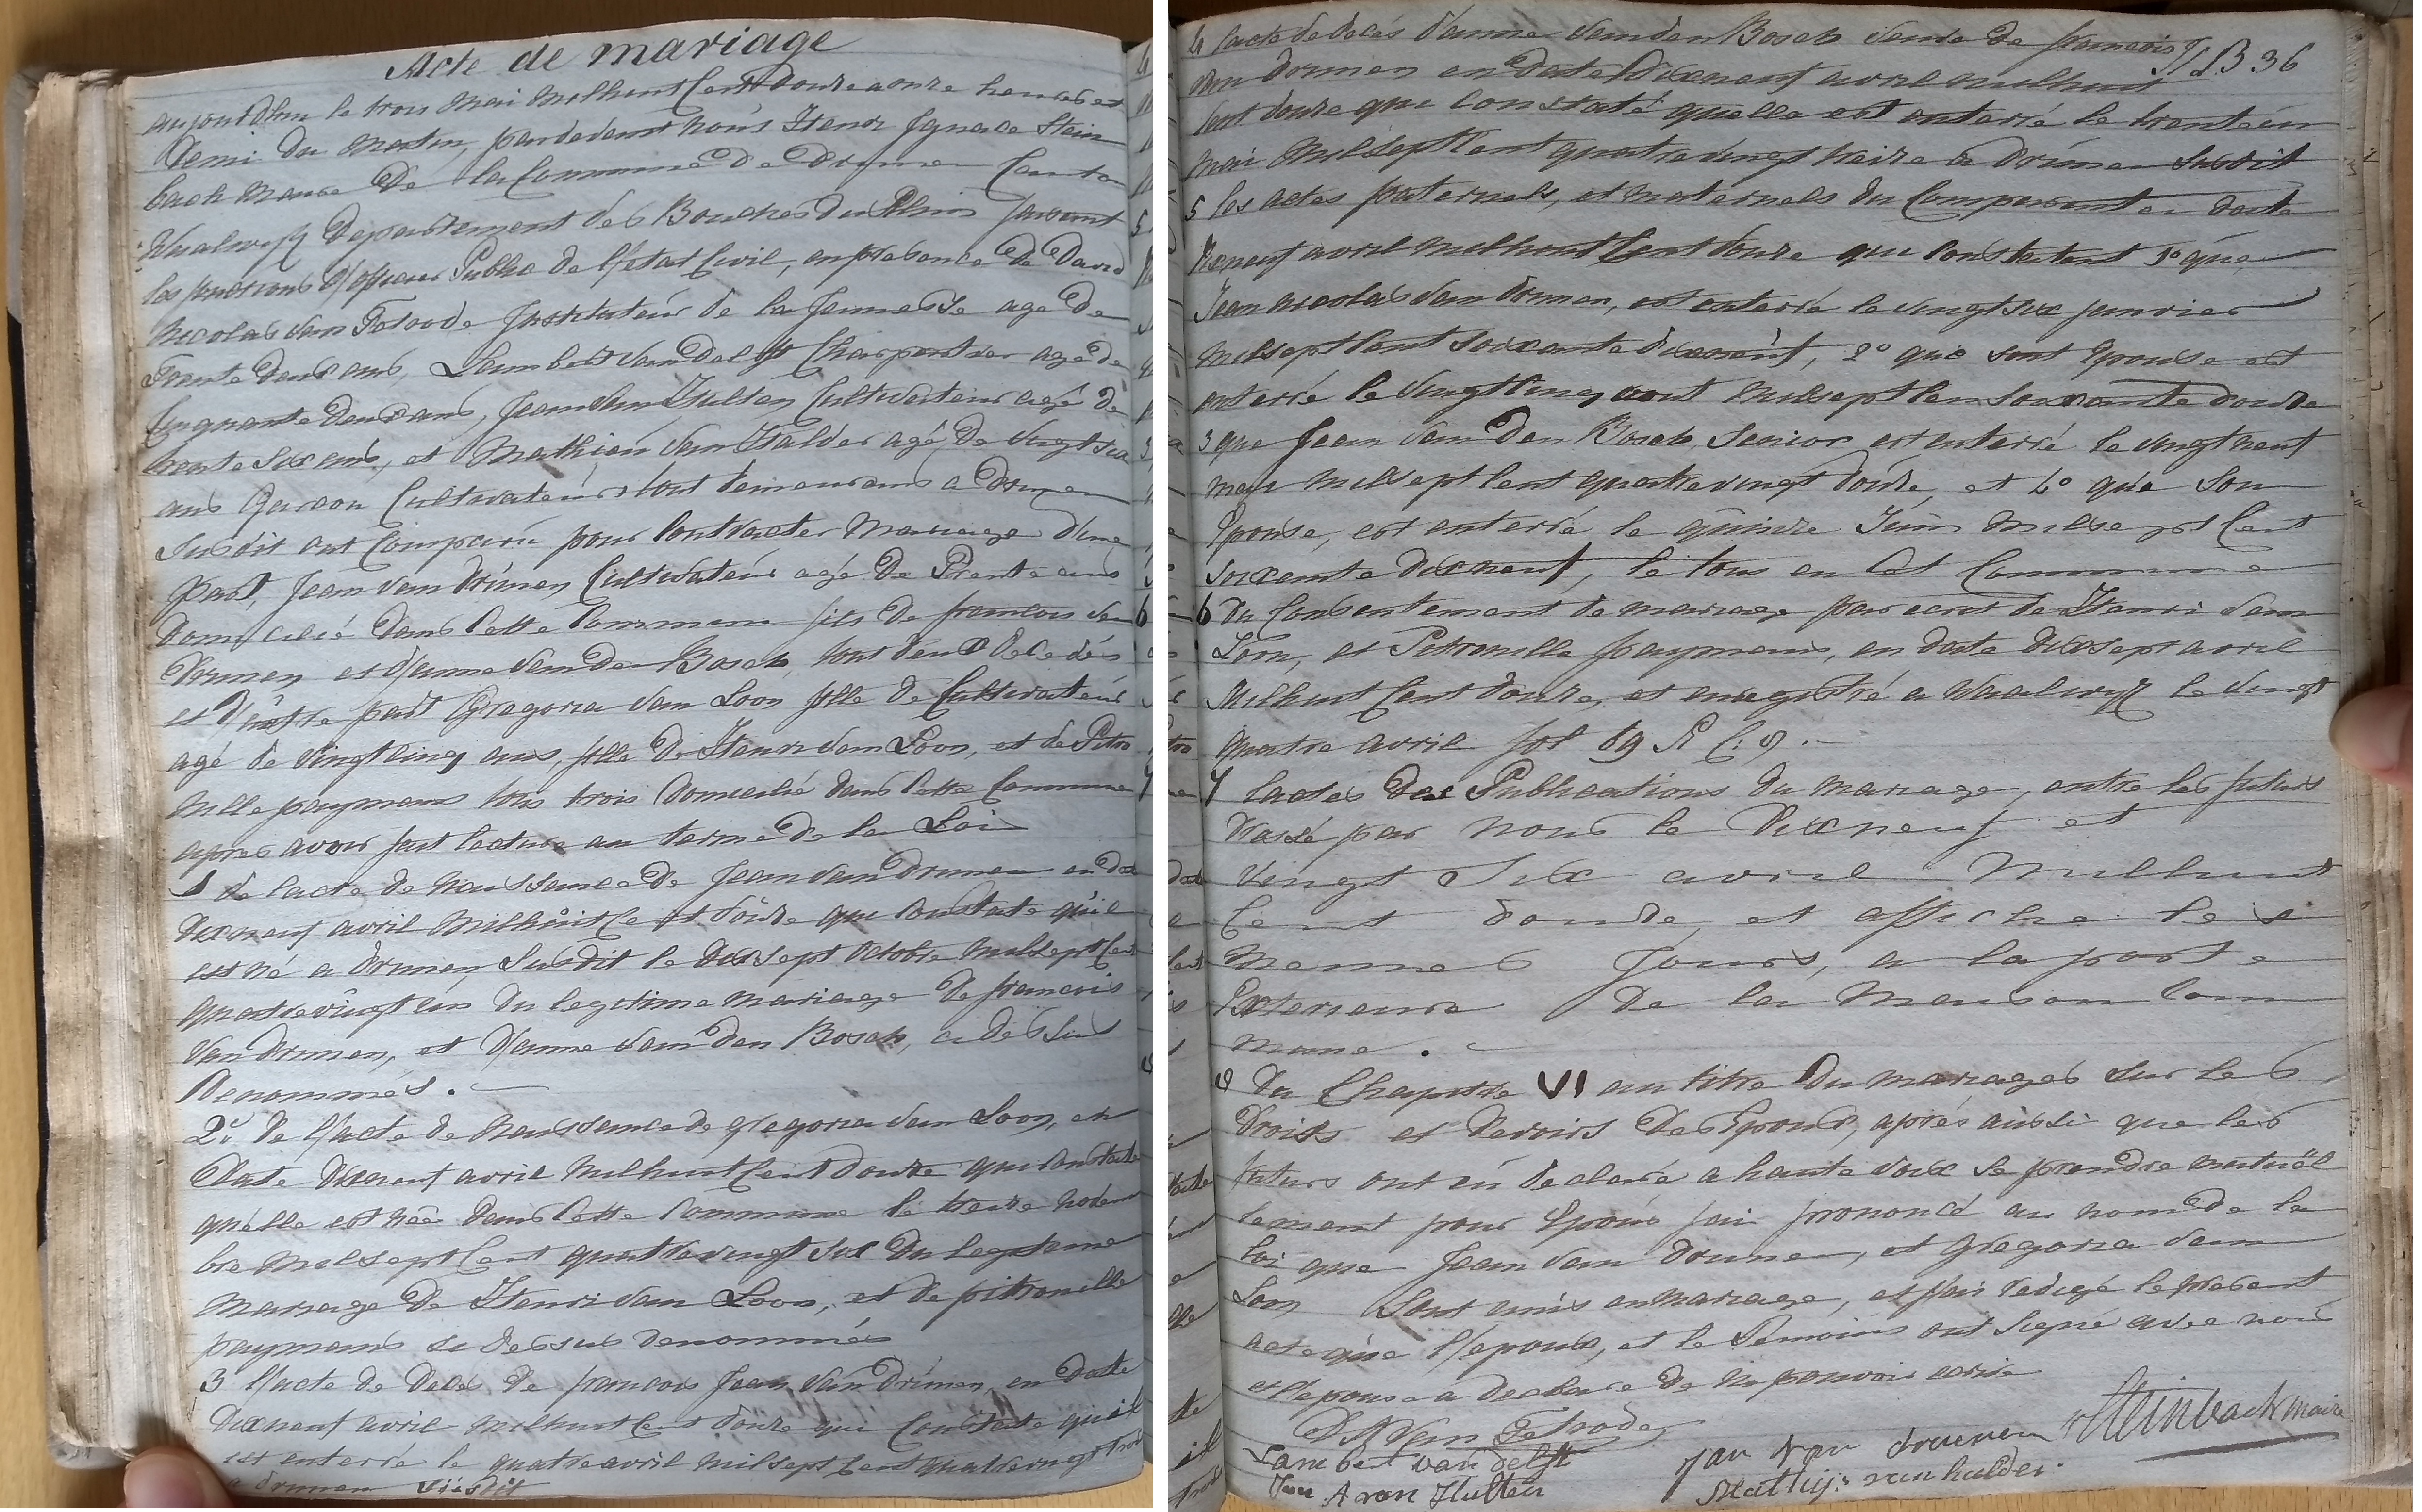 Acte de mariage
aujourdhui le trois Mai milhuit Cent douze a onze heures et
demi du matin, pardevant nous Henri Ignace Stein
bach Maire de la Commune de Drunen Canton
Waalwyk departement des Bouches du Rhin faisant
les fonctions d'officier Public de l'etat Civil, en presence de David
Nicolas van Tetrode Instituteur de la Jeunesse agé de
Trente deux ans, Lambert van Delft Charpentier agé de
Cinquante deux ans, Jean van Hulten Cultivateur agé de
trente six ans, et Mathieu van Halder agé de vingt six
ans Garcon Cultivateur tout demeurans a Drunen
Susdit ont Comparu pour Contracter Mariage d'une
part, Jean van Drúnen Cultivateur agé de Trente ans
domicilié dans Cette Commune fils de francois van
Drunen et d'anne van den Bosch, tout deux décedés
et d'autre part Gregoria van Loon fille de Cultivateur
agé de vingt cinq ans, fille de Henri van Loon, et de Petro
nille paymans tous trois domicilié dans Cette Commune
apres avoir fait lecture au terme de la Loi
1 de lacte de naissance de Jean van Drunen en date
dixneuf avril milhuit Cent douze que Constate qu'il
est né a Drunen Susdit le dixsept octobre milsept Cent
quatrevingt un du legitime mariage de francois
van Drunen, et d'anne van den Bosch, ci dessus
denommés.
2º de l'acte de naissance de gregoria van Loon, en
date dixneuf avril milhuit Cent douze qui Constate
quélle est née dans Cette Commune le treize novem
bre milsept Cent quattrevingt six du legitime
mariage de Henri van Loon, et de pitronille
paymans ci dessus denommés
3 l'acte de decés de francois Jean van Drúnen, en date
dixneuf avril milhuit Cent douze qui Constate qu'il
est enterré le quatre avril milsept Cent quatrevingt trois
a drunen susdit
4 lacte de decés d'anne van den Bosch veuve de francois N LB 36
van drunen en date dixneuf avril milhuit
Cent douze que Constaté quelle est enterré le trente un
mai Milsept Cent quatrevingt treize a drúnen Susdit
5 les actes paternels, et maternels du Comparant en date
dixneuf avril milhuit Cent douze que Constatent 1º que
Jean nicolas van drunen, est enterré le vingt six janvier
milsept Cent soixante dixneuf, 2º que sont Epouse est
enterré le vingt cinq aout milsept Cen soixante douze
3 que Jean van den Bosch Senior est enterré le vingt neuf
mai milsept Cent quatrevingt douze, et 4º que son
Epouse, est enterré le quinze Juin milsept Cent
soixante dixneuf, le tous en Cet Commune
6 du Consentement de mariage par ecrit de Henri van
Loon, et Petronille paymans, en date dixsept avril
Milhuit Cent douze, et enregistré a Waalwyk le vingt
quatre avril fol 69 R C: 9.
7 lactes des Publications du mariage, entre les futurs
drassé par nous le dixneuf et
vingt Six avril Milhuit
Cent douze, et affiche les
Mennes Jours, a la porte
Exterieure de la Maison Com
mune.
8 du Chapitre VI au titre du mariages sur les
droits et devoirs des Epoux, aprés aussi que les
futurs ont eú declaré a haute voix se prendre mutuël
lement pour Epoux jai prononcé au nom de la
loi que Jean van Drunen, et Gregoria van
Loon Sont unis en mariage, et j'ai redigé le present
acte que l'epoux, et le Temoins ont signé avec nous
et l'epouse a declare de ne pouvoir ecrire
DN Van Tetrode
Lambert van delft
Jan A van Hulten
Jan van drunen
Mathijs van halder
HISteinbach maire